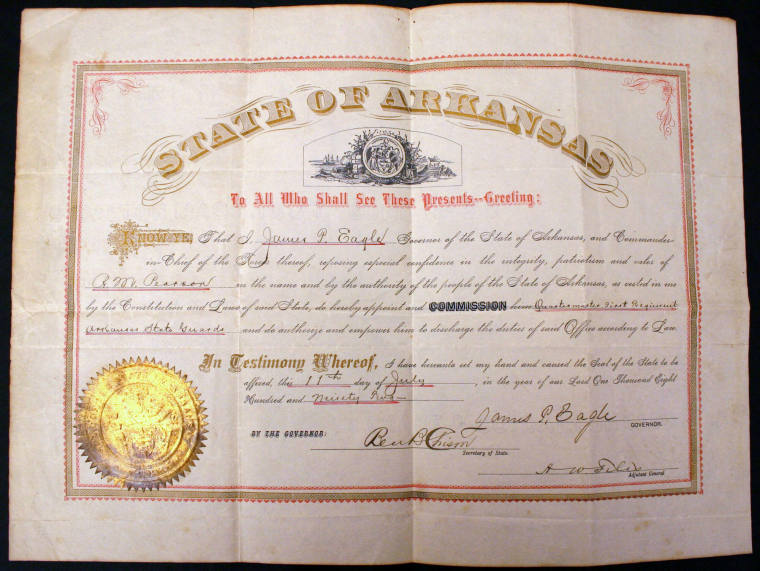 STATE OF ARKANSAS
To All Who Shall See These Presents--Greeting:
KNOW YE, That I, James P. Eagle Governor of the State of Arkansas, and Commander-
in-Chief of the Forces thereof, reposing especial confidence in the integrity, patriotism and valor of
R. M. Pearson in the name and by the authority of the people of the State of Arkansas, as vested in me
by the Constitution and Laws of said State, do hereby appoint and COMMISSION him Quartermaster First Regiment
Arkansas State Guards and do authorize and empower him to discharge the duties of said Office according to Law.
In Testimony Whereof, I have hereunto set my hand and caused the Seal of the State to be
affixed, this 11th day of July, in the year of our Lord One Thousand Eight
Hundred and Ninety Two
James P. Eagle
GOVERNOR.
BY THE GOVERNOR:
Ben B. Chism
Secretary of State.
Adjutant General